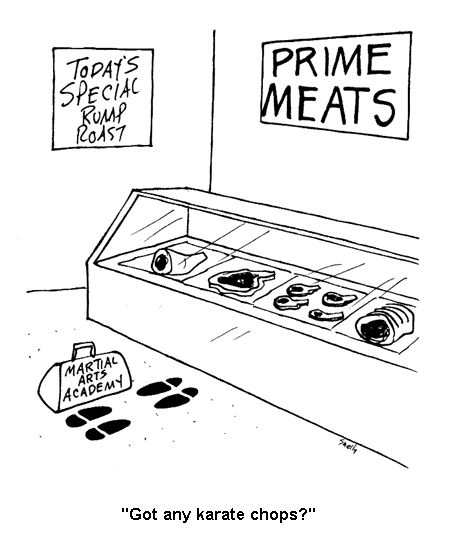 TODAY'S
SPECIAL
RUMP
ROAST
PRIME
MEATS
MARTIAL
ARTS
ACADEMY
"Got any karate chops?"